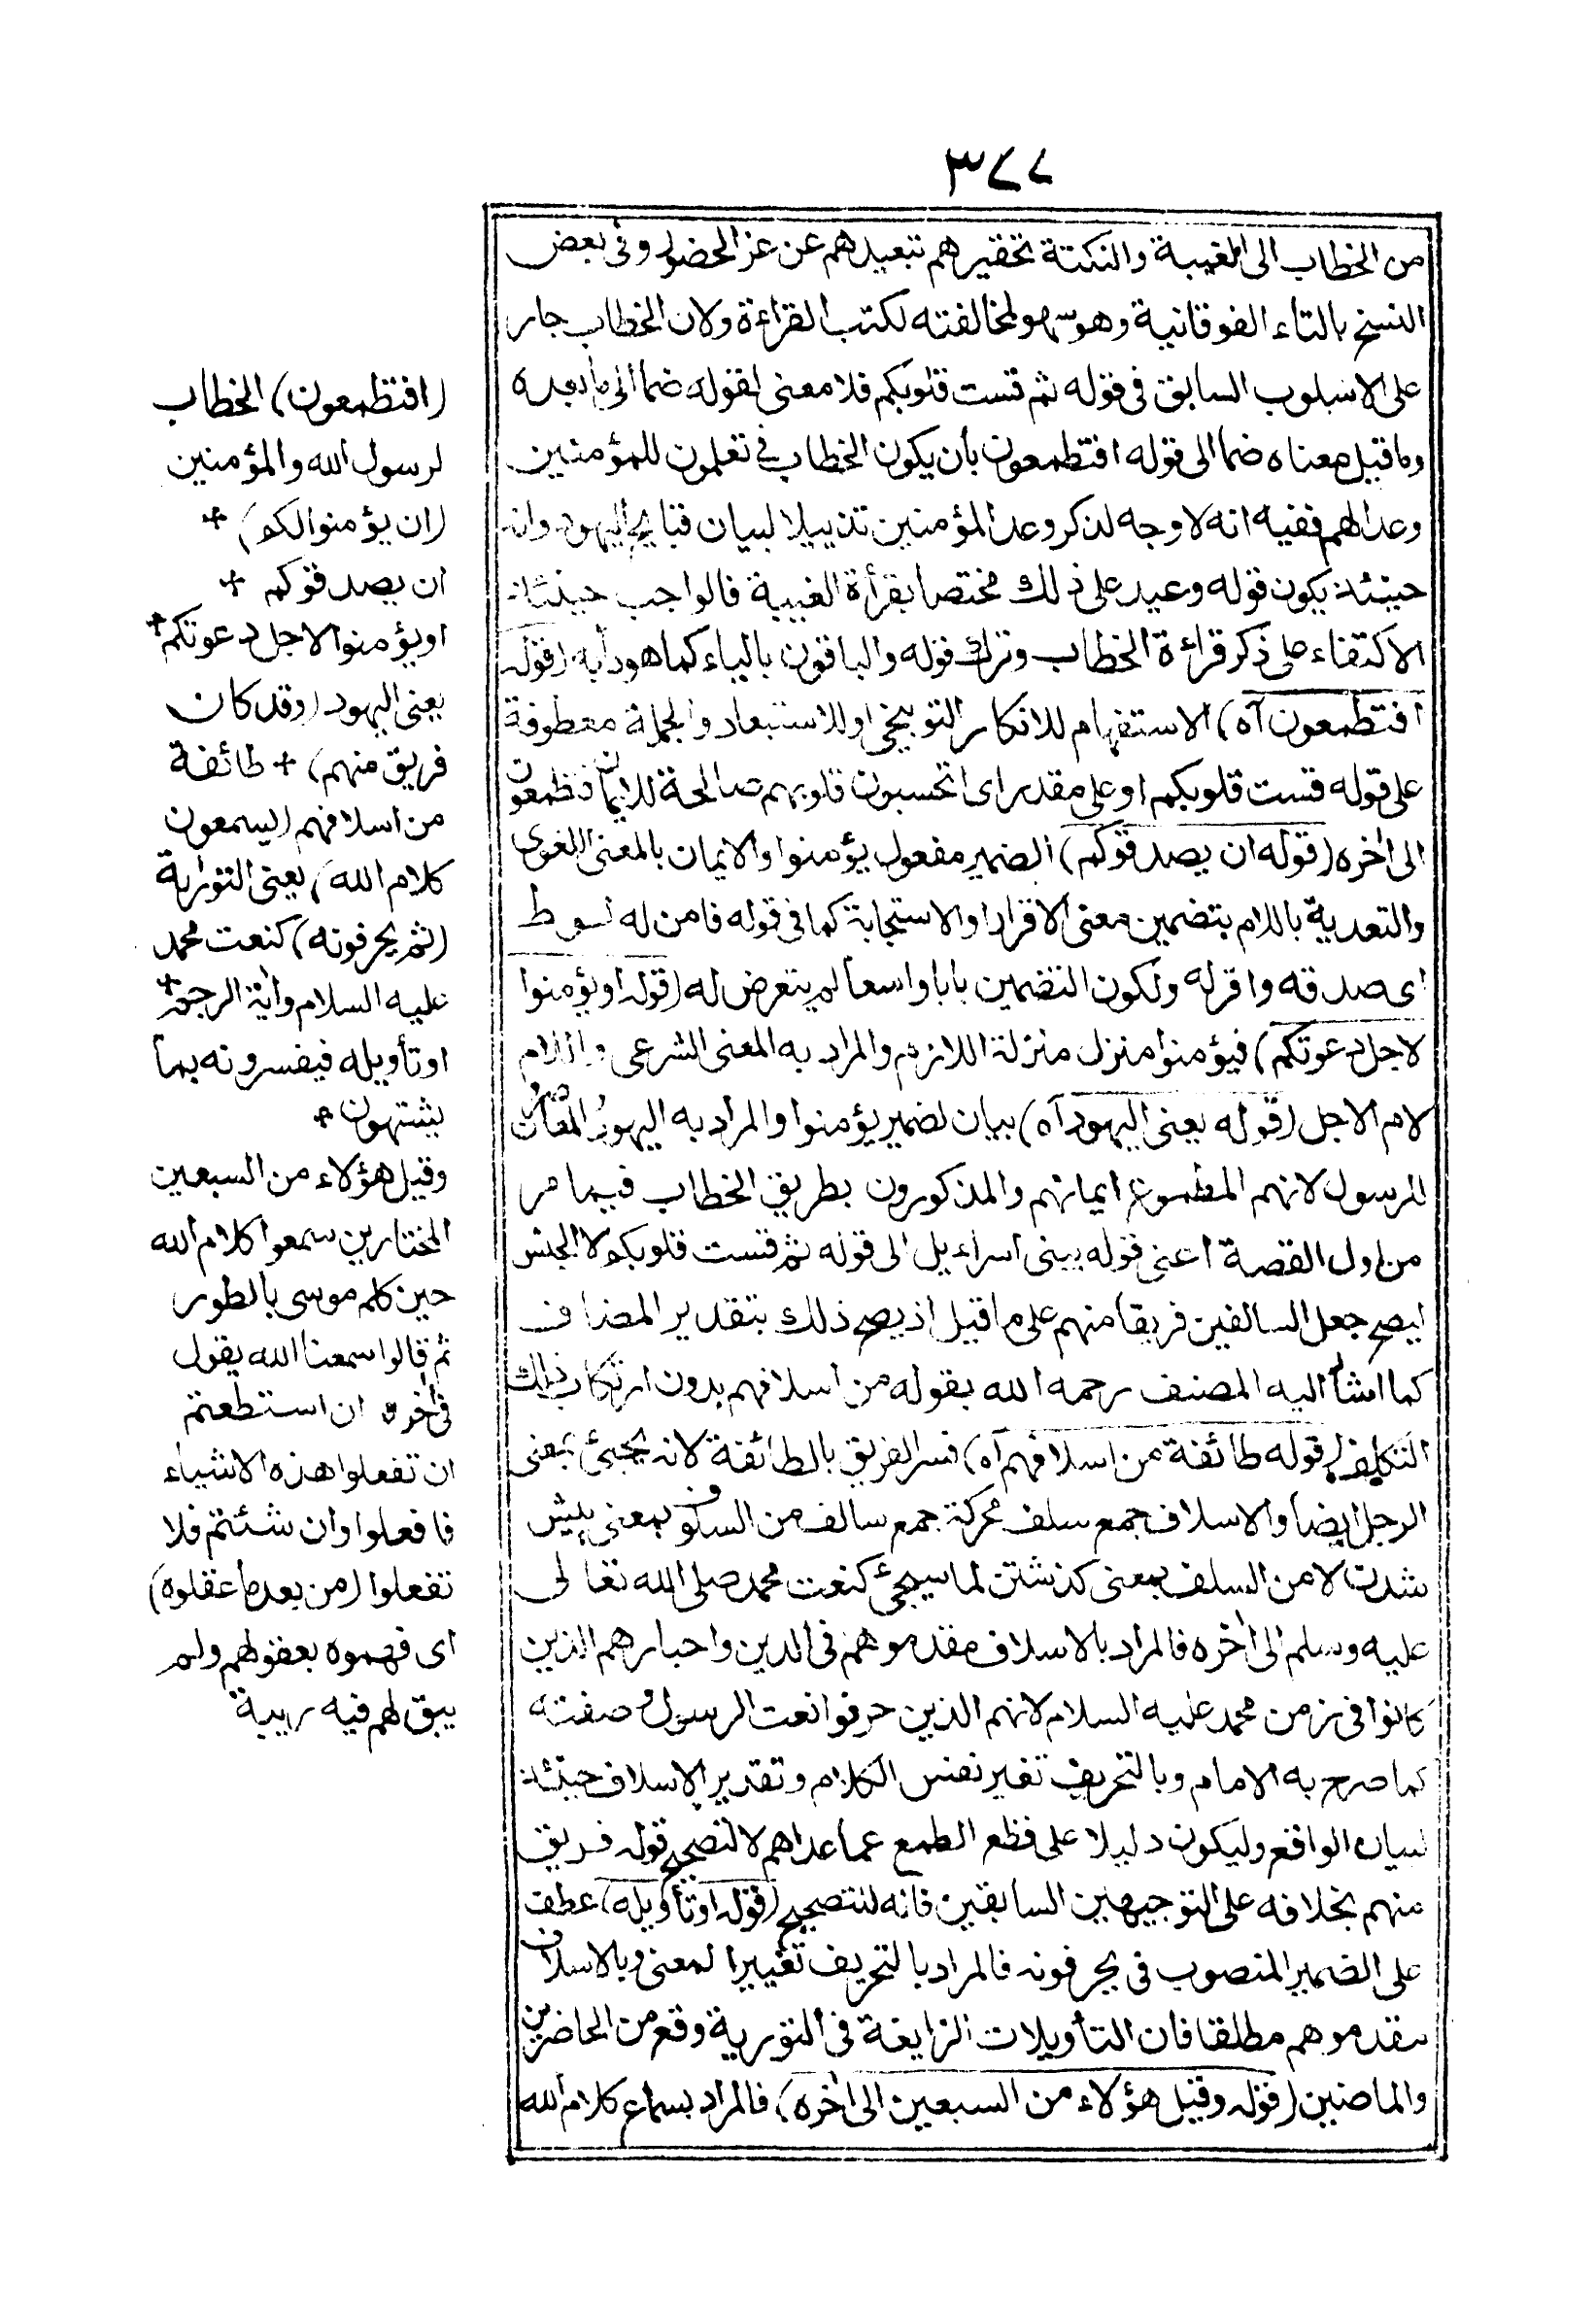 ٣٧٧
من الخطاب الى الغيبة والنكتة تحقيرهم تبعيدهم عن عز الحضور وفى بعض
النسخ بالتاء الفوقانية وهو سهو لمخالفته لكتب القراءة ولان الخطاب جار
على الاسلوب السابق فى قوله ثم قست قلوبكم فلا معنى لقوله ضما الى ما بعده
وما قيل معناه ضما الى قوله افتطمعون بأن يكون الخطاب فى تعلمون للمؤمنين
وعدا لهم ففيه انه لا وجه لذكر وعد المؤمنين تذييلا لبيان قبايح اليهود وانه
حينئذ يكون قوله وعيد على ذلك مختصا بقرأة الغيبة فالواجب حينئذ
الاكتفاء على ذكر قراءة الخطاب وترك قوله والباقون بالياء كما هو دأبه (قوله
افتطمعون آه) الاستفهام للانكار التوبيخى او للاستبعاد والجملة معطوفة
على قوله قست قلوبكم او على مقدر اى اتحسبون قلوبهم صالحة للايمان فتطمعون
الى اخره (قوله ان يصدقوكم) الضمير مفعول يؤمنوا والايمان بالمعنى اللغوى
والتعدية باللام بتضمين معنى الاقرار او الاستجابة كما فى قوله فامن له لوط
اى صدقه واقر له ولكون التضمين بابا واسعا لم يتعرض له (قوله او يؤمنوا
لاجل دعوتكم) فيؤمنوا منزل منزلة اللازم والمراد به المعنى الشرعى واللام
لام الاجل (قوله يعنى اليهود آه) بيان لضمير يؤمنوا والمراد به اليهود المعاصرون
للرسول لانهم المطموع ايمانهم والمذكورون بطريق الخطاب فيما مر
من اول القصة اعنى قوله يبنى اسراءيل الى قوله ثم قست قلوبكم لا الجنس
ليصح جعل السالفين فريقا منهم على ما قيل اذ يصح ذلك بتقدير المضاف
كما اشار اليه المصنف رحمه الله بقوله من اسلافهم بدون ارتكاب ذلك
التكلف (قوله طائفة من اسلافهم آه) فسر الفريق بالطائفة لانه يجيئ بمعنى
الرجل ايضا والاسلاف جمع سلف محركة جمع سالف من السلوف بمعنى پيش
شدن لا من السلف بمعنى كذشتن لما سيجئ كنعت محمد صلى الله تعالى
عليه وسلم الى اخره فالمراد بالاسلاف مقدموهم فى الدين واحبارهم الذين
كانوا فى زمن محمد عليه السلام لانهم الذين حرفوا نعت الرسول وصفته
كما صرح به الامام وبالتحريف تغير نفس الكلام وتقدير الاسلاف حينئذ
لبيان الواقع وليكون دليلا على قطع الطمع عما عداهم لا لتصحيح قوله فريق
منهم بخلافه على التوجيهين السابقين فانه لتصحيح (قوله او تأويله) عطف
على الضمير المنصوب فى يحرفونه فالمراد بالتحريف تغيير المعنى وبالاسلاف
متقدموهم مطلقا فان التأويلات الزايغة فى التورية وقع من الحاضرين
والماضين (قوله وقيل هؤلاء من السبعين الى اخره) فالمراد بسماع كلام الله
(افتطمعون) الخطاب
لرسول الله والمؤمنين
(ان يؤمنوا لكم) +
ان يصدقوكم +
او يؤمنوا لاجل دعوتكم +
يعنى اليهود (وقد كان
فريق منهم) + طائفة
من اسلافهم (يسمعون
كلام الله) يعنى التورية
(ثم يحرفونه) كنعت محمد
عليه السلام واية الرجم +
او تأويله فيفسرونه بما
يشتهون +
وقيل هؤلاء من السبعين
المختارين سمعوا كلام الله
حين كلم موسى بالطور
ثم قالوا سمعنا الله يقول
فى اخره ان استطعتم
ان تفعلوا هذه الاشياء
فافعلوا وان شئتم فلا
تفعلوا (من بعد ما عقلوه)
اى فهموه بعقولهم ولم
يبق لهم فيه ريبة